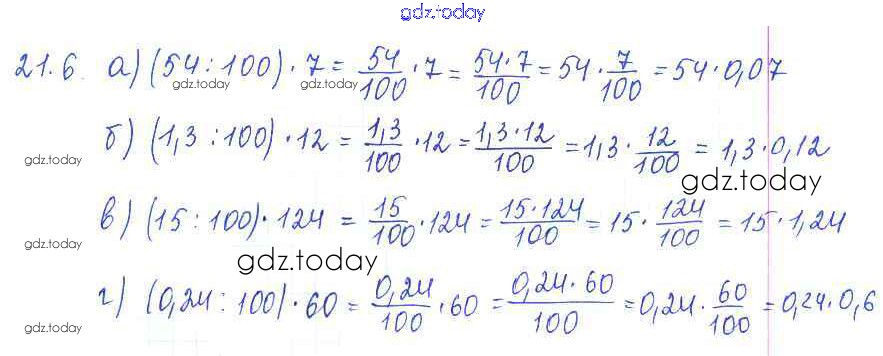 gdz.today
21.6. а) (54 : 100) · 7 = 54/100 · 7 = 54·7/100 = 54 · 7/100 = 54 · 0,07
gdz.today gdz.today gdz.today
б) (1,3 : 100) · 12 = 1,3/100 · 12 = 1,3·12/100 = 1,3 · 12/100 = 1,3 · 0,12
gdz.today gdz.today
в) (15 : 100) · 124 = 15/100 · 124 = 15·124/100 = 15 · 124/100 = 15 · 1,24
gdz.today gdz.today
г) (0,24 : 100) · 60 = 0,24/100 · 60 = 0,24·60/100 = 0,24 · 60/100 = 0,24 · 0,6
gdz.today